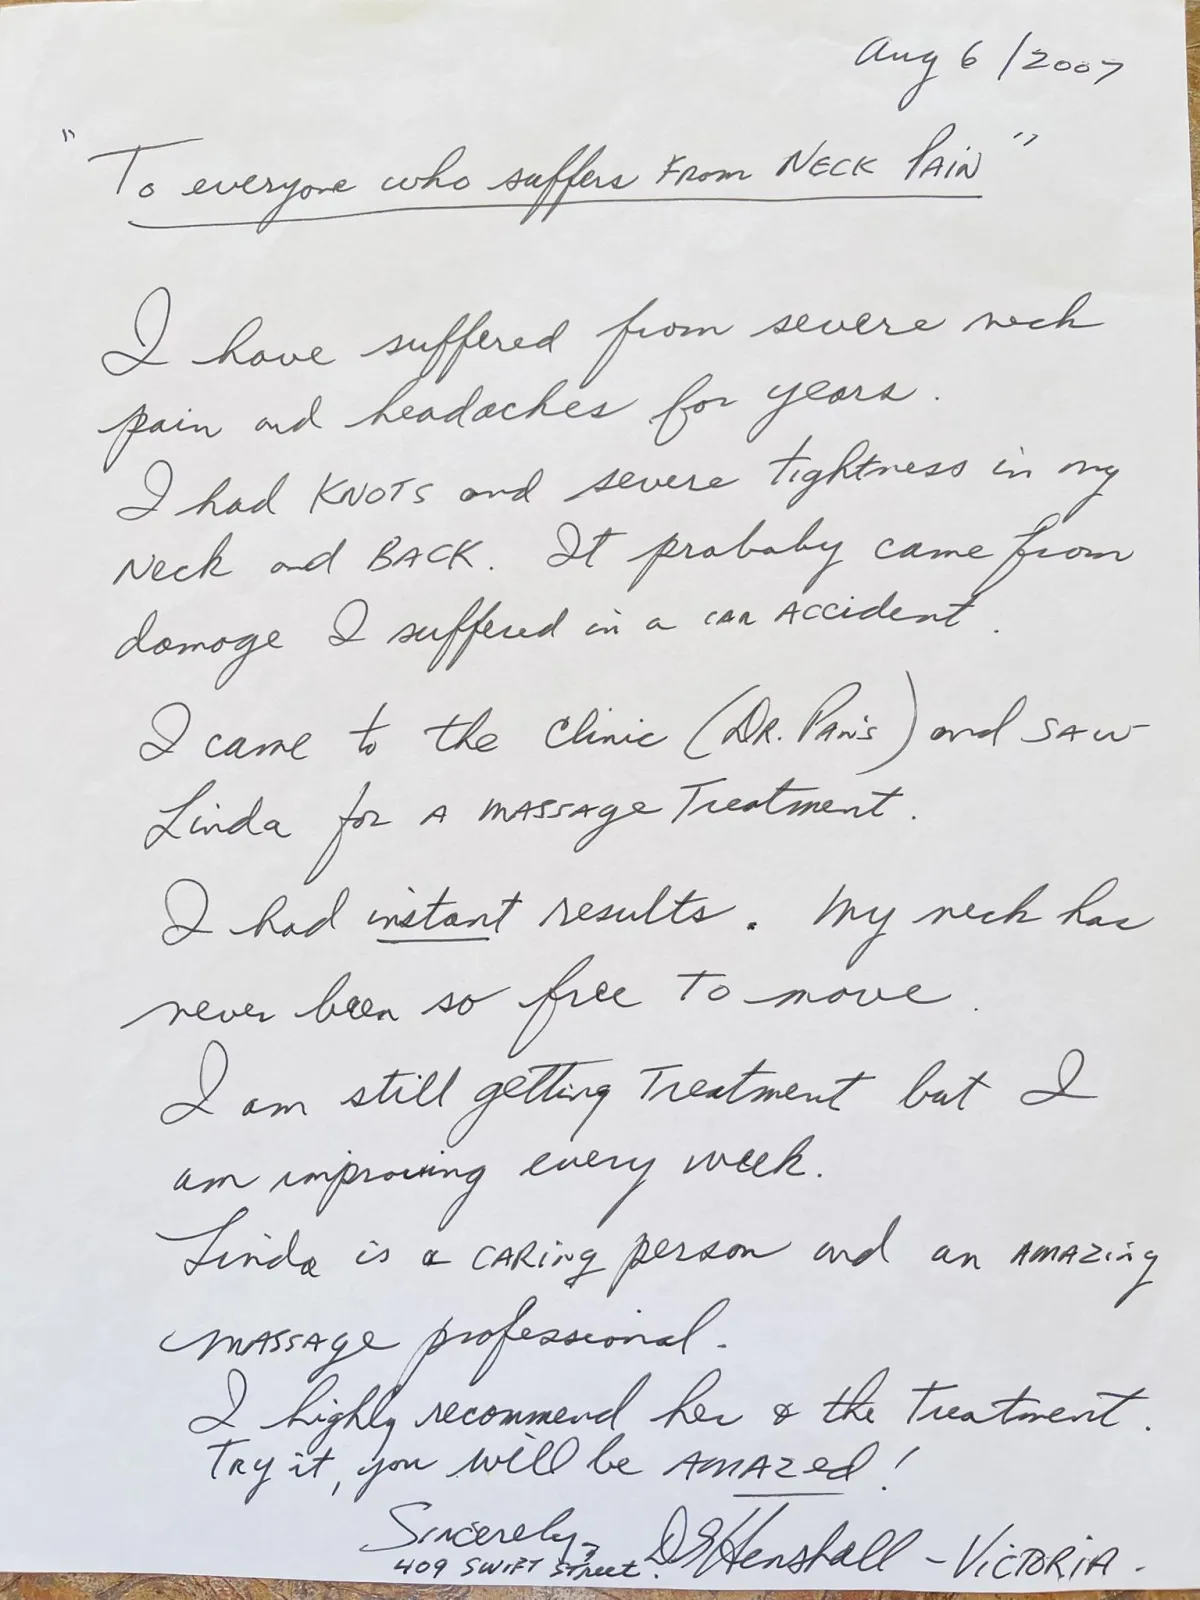 Aug 6/2007
"To everyone who suffers FROM NECK PAIN"
I have suffered from severe neck
pain and headaches for years.
I had KNOTS and severe tightness in my
Neck and BACK. It probaby came from
damage I suffered in a CAR ACCIDENT.
I came to the Clinic (DR. PAN'S) and SAW
Linda for A MASSAge Treatment.
I had instant results. My neck has
never been so free To move.
I am still getting Treatment but I
am improving every week.
Linda is a CARing person and an AMAZing
MASSAge professional.
I highly recommend her & the Treatment.
TRY it, you will be AMAZed!
Sincerely, D Henshall - VICTORIA.
409 SWIFT Street.